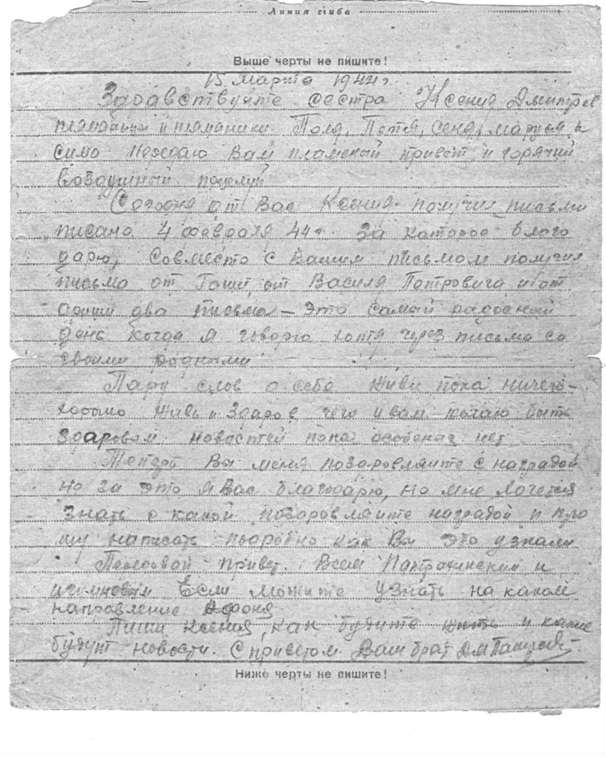 Линия сгиба
Выше черты не пишите!
15 марта 1944г
Здравствуйте сестра Ксения Дмитрев
племянники Поля, Петя, Сеня,
симо передаю Вам пламеный привет и горячий
воздушный поцелуй
Сегодня от Вас Ксения получил письмо
писано 4 февраля 44г. за которое благо
дарю, Совместо с Вашим письмом получил
письма от Гоши от Василя Петровича и от
два письма – это самый радосный
день когда я говорю хотя через письма со
своими родными
Пару слов о себе живу пока ничего-
хорошо жив и здоров чего и вам желаю быть
здоровым новостей пока особеных нет
Теперь Вы меня поздоровляите с наградой
но за это я Вас благодарю, но мне хочется
знать с какой поздоровляите наградой и про
шу написать подробно как Вы это узнали
Передавай привет. Всем и
Если можите узнать на каком
направление Афоня
Пиши Ксения, как будите жить и какие
будут новости. С приветом Ваш брат Дм
Ниже черты не пишите!